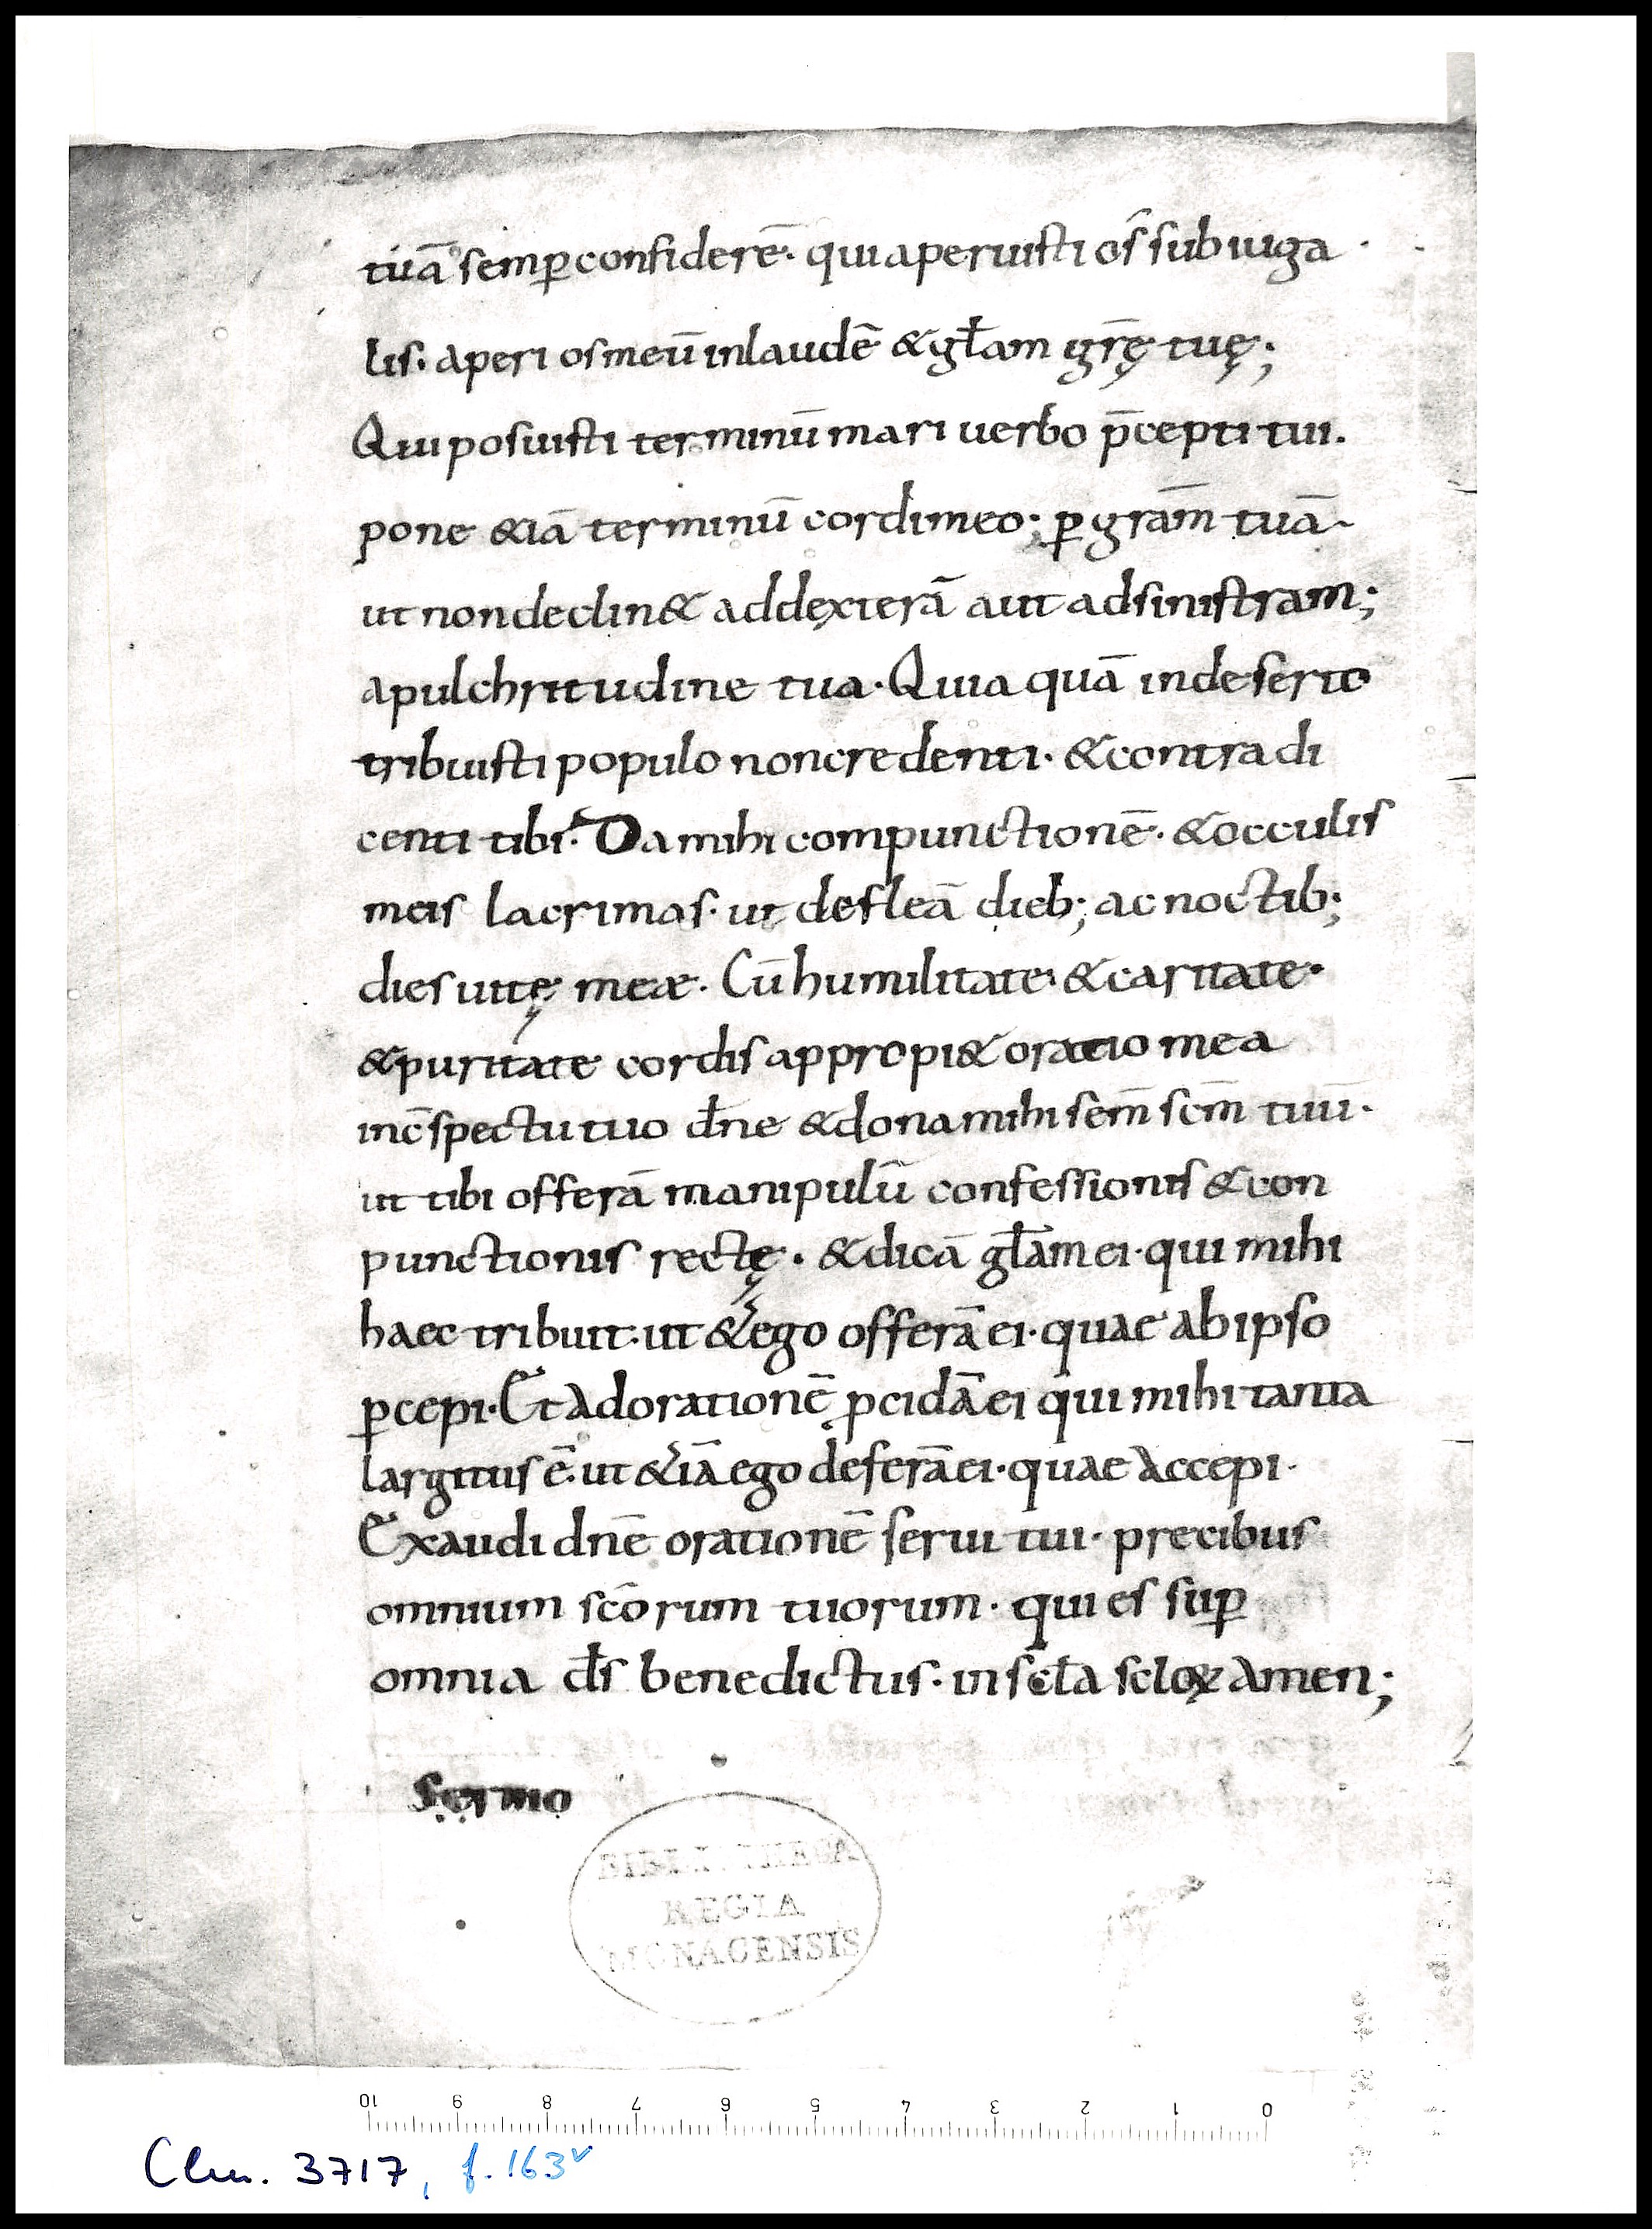 tuā semꝑ considerē· qui aperuisti os̄ subiuga
lis· aperi os meū in laudē &gl̄am gr̄ę tuę;
Qui posuisti terminū mari uerbo p̄cepti tui.
pone &iā terminū cordi meo; ꝑ grām̄ tuā
ut non declin& ad dęxterā aut ad sinistram;
a pulchritudine tua· Quia quā in deserto
tribuisti populo non credenti· &contradi
centi tibi· Da mihi compunctionē· &occulis
meis lacrimas· ut defleā dieb; ac noctib;
dies uitę meæ· Cū humilitate &caritate·
&puritate cordis appropi& oratio mea
inc̄spectu tuo dn̄e &dona mihi sem̄ scm̄ tuū·
ut tibi offerā manipulū confessionis &con
punctionis rectę· &dicā gl̄am ei· qui mihi
haec tribuit: ut &ego offerā ei· quae ab ipso
ꝑcepi· Et adorationē ꝓcidā ei qui mihi tanta
largitus ē· ut &iā ego deferā ei· quae accepi·
Exaudi dn̄e orationē serui tui· precibus
omnium sc̄orum tuorum· qui es suꝑ
omnia dr̄s benedictus· in scl̄a scloꝝ amen;
Sermo
BIBLIOTHECA
REGIA
MONACENSIS
10 9 8 7 6 5 4 3 2 1 0
Clm. 3717, f. 163v